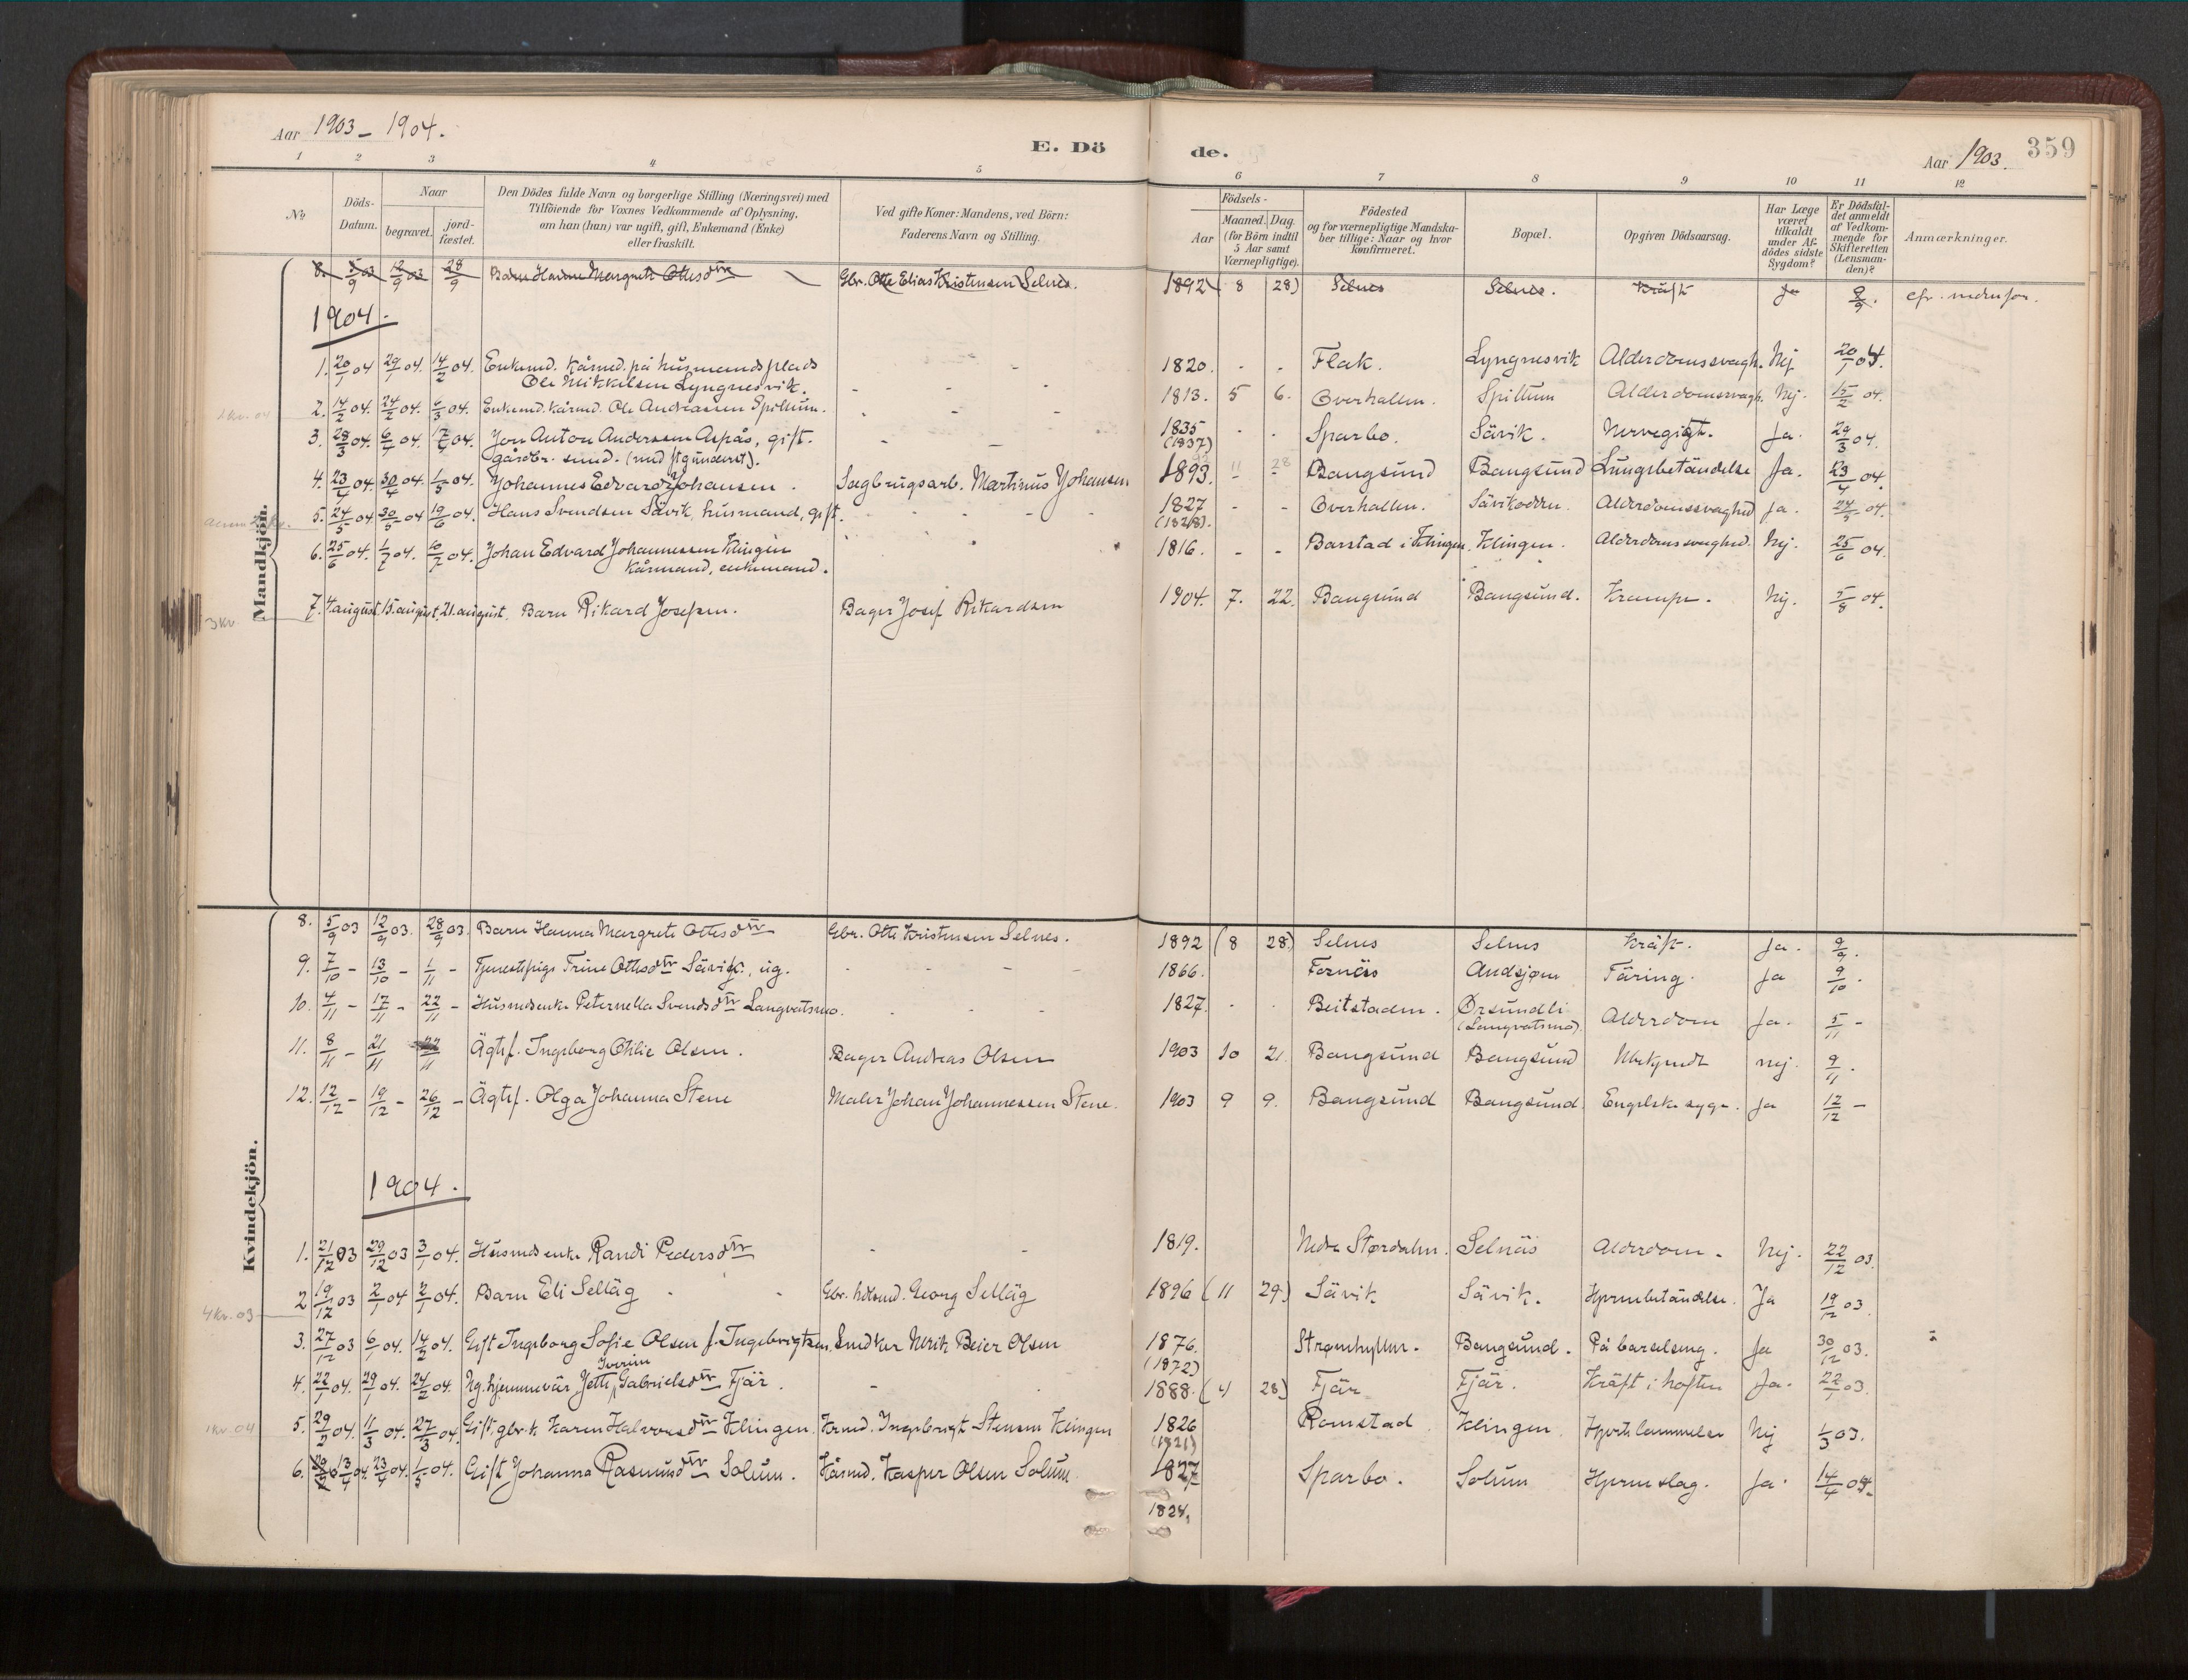 Aar 1903 - 1904.
E. Dö
de.
Aar 1903.
359
1 2 3 4 5 6 7 8 9 10 11 12
No
Döds-Datum.
Naar
begravet.
jord-fæstet.
Den Dödes fulde Navn og borgerlige Stilling (Næringsvei) med
Tilföiende for Voxnes Vedkommende af Oplysning,
om han (hun) var ugift, gift, Enkemand (Enke)
eller fraskilt.
Ved gifte Koner: Mandens, ved Börn:
Faderens Navn og Stilling.
Födsels-
Aar
Maaned. Dag.
(for Börn indtil
5 Aar samt
Værnepligtige).
Födested
og for værnepligtige Mandska-
ber tillige: Naar og hvor
konfirmeret.
Bopæl.
Opgiven Dödsaarsag.
Har Læge
været
tilkaldt
under Af-
dödes sidste
Sygdom?
Er Dödsfal-
det anmeldt
af Vedkom-
mende for
Skifteretten
(Lensman-
den)?
Anmærkninger.
Mandkjön.
8. 5/9 03 12/9 03 28/9 Barn Hanna Margrete Ottesdtr Gbr. Otte Elias Kristensen Selnes. 1892 8 28) Selnes Selnes. Kräft Ja 9/9. cfr. nedenfor.
1904.
1. 20/1 04 29/1 04. 14/2 04. Enkemd. kårmd. på husmandsplads - - - 1820. - - Flak. Lyngnesvik Alderdomssvagh. Nej 20/1 04.
Ole Mikkelsen Lyngnesvik.
1 kv. 04
2. 14/2 04. 24/2 04. 6/3 04. Enkemd. kårmd. Ole Andreassen Spillum. - - - 1813. 5 6. Overhallen. Spillum Alderdomssvagh. Nej. 15/2 04.
3. 28/3 04. 6/4 04. 17/4 04. Jon Anton Anderssen Aspås, gift. - - - 1835 - - Sparbo. Sävik. Nervegigt. Ja. 29/3 04.
gårdbr. smed. (1837)
4. 23/4 04. 30/4 04. 1/5 04. Johannes Edvard Johansen. Sagbrugsarb. Martinus Johansen 1893. 11 28 Bangsund Bangsund Lungebetändelse Ja. 23/4 04.
5. 24/5 04. 30/5 04 19/6 04. Hans Svendsen Sävik, husmand, gift. - - - 1827 - - Overhallen. Sävikodden. Alderdomssvaghed Ja. 27/5 04.
(1828).
6. 25/6 04. 1/7 04. 10/7 04. Johan Edvard Johannessen Klingen 1816. - - Barstad i Klingen. Klingen. Alderdomssvaghed. Nej. 25/6 04.
kårmand, enkemand.
3 kv.
7. 4. august. 15. august. 21. august. Barn Rikard Josefsen. Bager Josef Rikardsen 1904. 7. 22. Bangsund Bangsund. Krampe. Nej. 5/8 04.
Kvindekjön.
8. 5/9 03 12/9 03. 28/9 03. Barn Hanna Margrete Ottesdtr Gbr. Otte Kristensen Selnes. 1892 (8 28.) Selnes Selnes Kräft. Ja. 9/9.
9. 7/10 - 13/10 - 1/11 - Tjenestepige Trine Ottesdtr Sävik, ug. - - - 1866. Fornäss Andsjøen Täring. Ja 9/10.
10. 4/11 - 17/11 - 22/11 - Husmdsenke Peternella Svendsdtr Langvatsmo. - - - 1827. - - Beitstaden. Ørsundli Alderdom Ja. 5/11 -
(Langvatsmo).
11. 8/11 - 21/11 22/11 Ägtef. Ingeborg Otilie Olsen. Bager Andreas Olsen 1903 10 21. Bangsund Bangsund Ubekjendt nej. 9/11.
12. 12/12 - 19/12 - 26/12 - Ägtef. Olga Johanna Stene Maler Johan Johannessen Stene. 1903 9 9. Bangsund Bangsund. Engelske syge. Ja 12/12 -
1904.
1. 21/12 03 29/12 03 3/1 04. Husmdsenke Randi Pedersdtr - - 1819. Nedre Størdalen. Selnäs Alderdom. Nej. 22/12 03.
2 19/12 03 2/1 04 2/1 04. Barn Eli Selläg - - Gbr. hdlsmd. Georg Selläg 1896 (11 29.) Sävik Sävik. Hjernebetändelse. Ja 19/12 03.
4 kv. 03
3. 27/12 03 6/1 04. 14/2 04. Gift Ingeborg Sofie Olsen f. Ingebrigtsen. Snedker Merik Beier Olsen 1876. Strømhyllen. Bangsund. På barselseng. Ja 30/12 03.
(1872)
4. 22/1 04. 29/1 04. 24/2 04. Ug. hjemmevär. Jette Iverine Gabrielsdtr Fjär. - - 1888. (4 28) Fjär Fjär. Kräft i hoften Ja. 22/1 03.
1 kv 04
5. 29/2 04. 11/3 04. 27/3 04. Gift. gbr.k. Karen Halvorsdtr Klingen. Krmd. Ingebrigt Stensen Klingen 1826 Romstad Klingen Hjertelammelse Nej 1/3 03.
(1821)
6. 13/4 04. 23/4 04. 1/5 04. Gift Johanna Rasmusdtr Solum. Kårmd. Kasper Olsen Solum 1827 Sparbo. Solum Hjerneslag. Ja. 14/4 04.
1824.